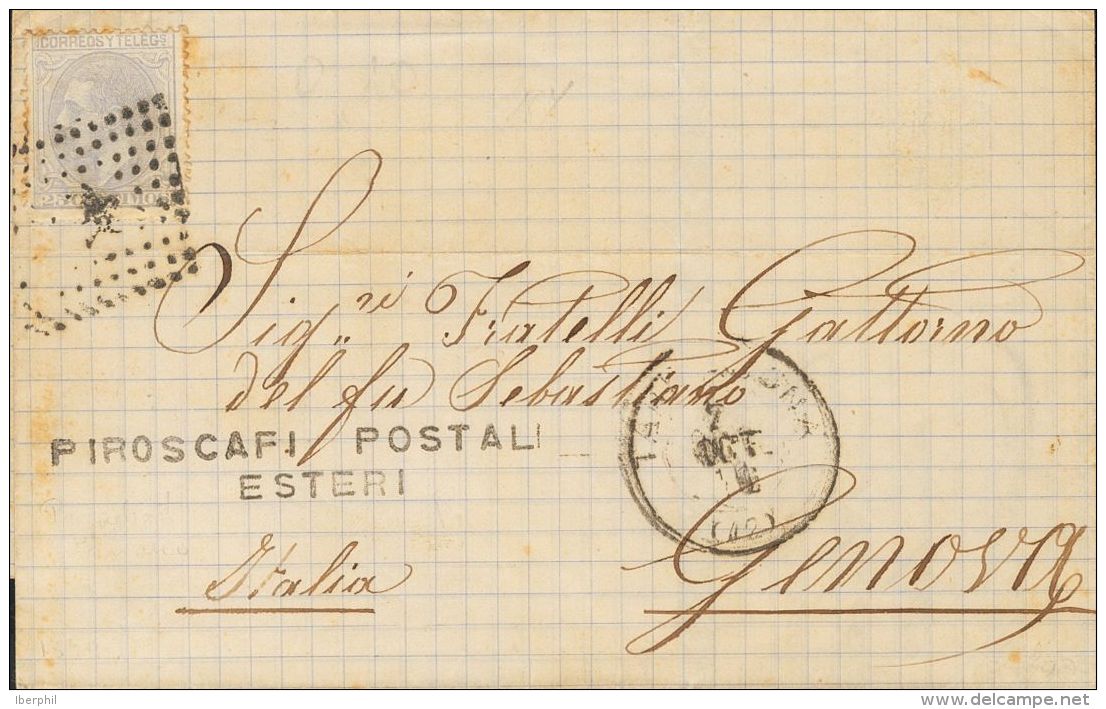 CORREOS Y TELEGS
Sig.ri Fratelli Gattorno
del fu Sebastiano
PIROSCAFI POSTALI
ESTERI
OCT.
(42)
Italia
Genova
Iberphil
www.delcampe.net